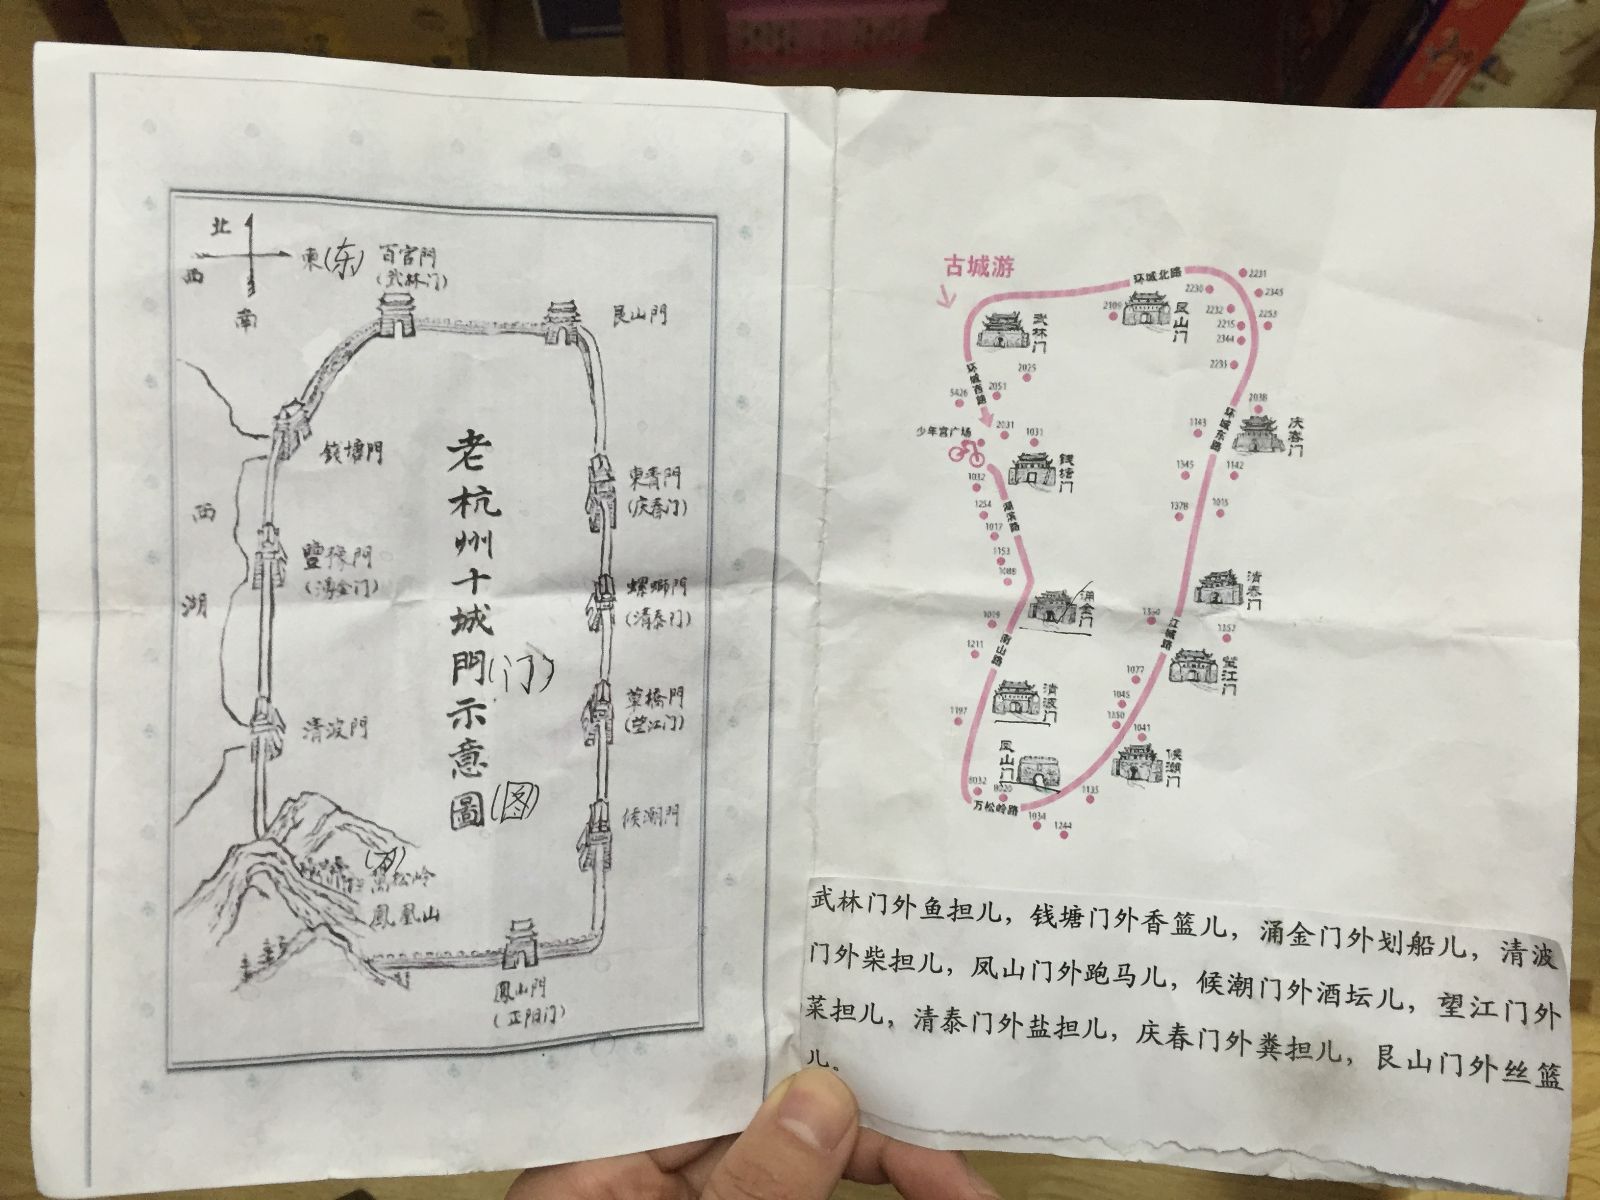 北
西
東(东)
南
百官門
(武林门)
艮山門
錢塘門
東青門
(庆春门)
豐豫門
(涌金门)
螺螄門
(清泰门)
西
湖
草橋門
(望江门)
清波門
候潮門
(万)
萬松岭
鳳凰山
鳳山門
(正阳门)
老杭州十城門(门)示意圖(图)
古城游
环城北路
2231
2230
2343
2189
2232
2253
2215
2344
2233
武林门
凤山门
环城西路
2025
2051
5426
2038
环城东路
庆春门
1143
少年宫广场
2031
1031
钱塘门
1032
1345
1142
1254
湖滨路
1378
1015
1017
1153
1088
清泰门
涌金门
1019
1350
江城路
1352
1211
南山路
望江门
1077
清波门
1045
1197
1350
1041
候潮门
凤山门
8032
8020
1135
万松岭路
1034
1244
武林门外鱼担儿，钱塘门外香篮儿，涌金门外划船儿，清波
门外柴担儿，凤山门外跑马儿，候潮门外酒坛儿，望江门外
菜担儿，清泰门外盐担儿，庆春门外粪担儿，艮山门外丝篮
儿。